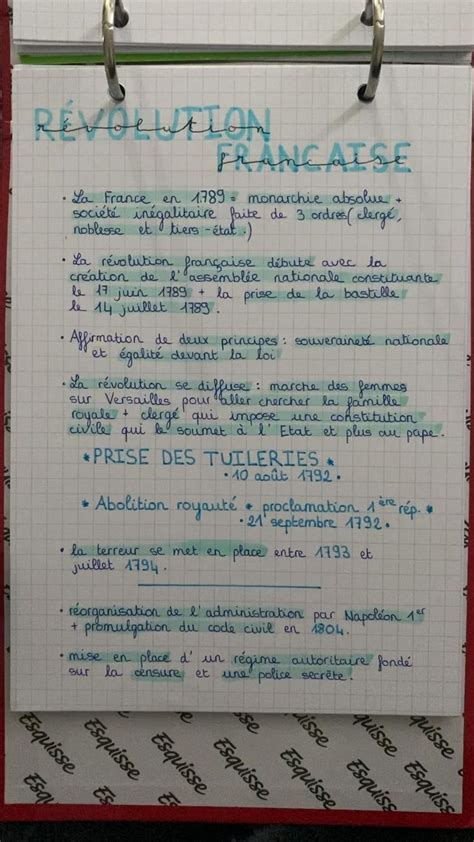 RÉVOLUTION
révolution
FRANCAISE
francaise
• La France en 1789 = monarchie absolue +
société inégalitaire faite de 3 ordres (clergé,
noblesse et tiers-état.)
• La révolution française débute avec la
création de l'assemblée nationale constituante
le 17 juin 1789 + la prise de la bastille
le 14 juillet 1789.
• Affirmation de deux principes : souveraineté nationale
et égalité devant la loi
• La révolution se diffuse : marche des femmes
sur Versailles pour aller chercher la famille
royale + clergé qui impose une constitution
civile qui le soumet à l'Etat et plus au pape.
* PRISE DES TUILERIES *
• 10 août 1792 •
* Abolition royauté * proclamation 1ère rép. *
• 21 septembre 1792 •
• la terreur se met en place entre 1793 et
juillet 1794.
• réorganisation de l'administration par Napoléon 1er
+ promulgation du code civil en 1804.
• mise en place d'un régime autoritaire fondé
sur la censure et une police secrète.
Esquisse Esquisse Esquisse Esquisse Esquisse